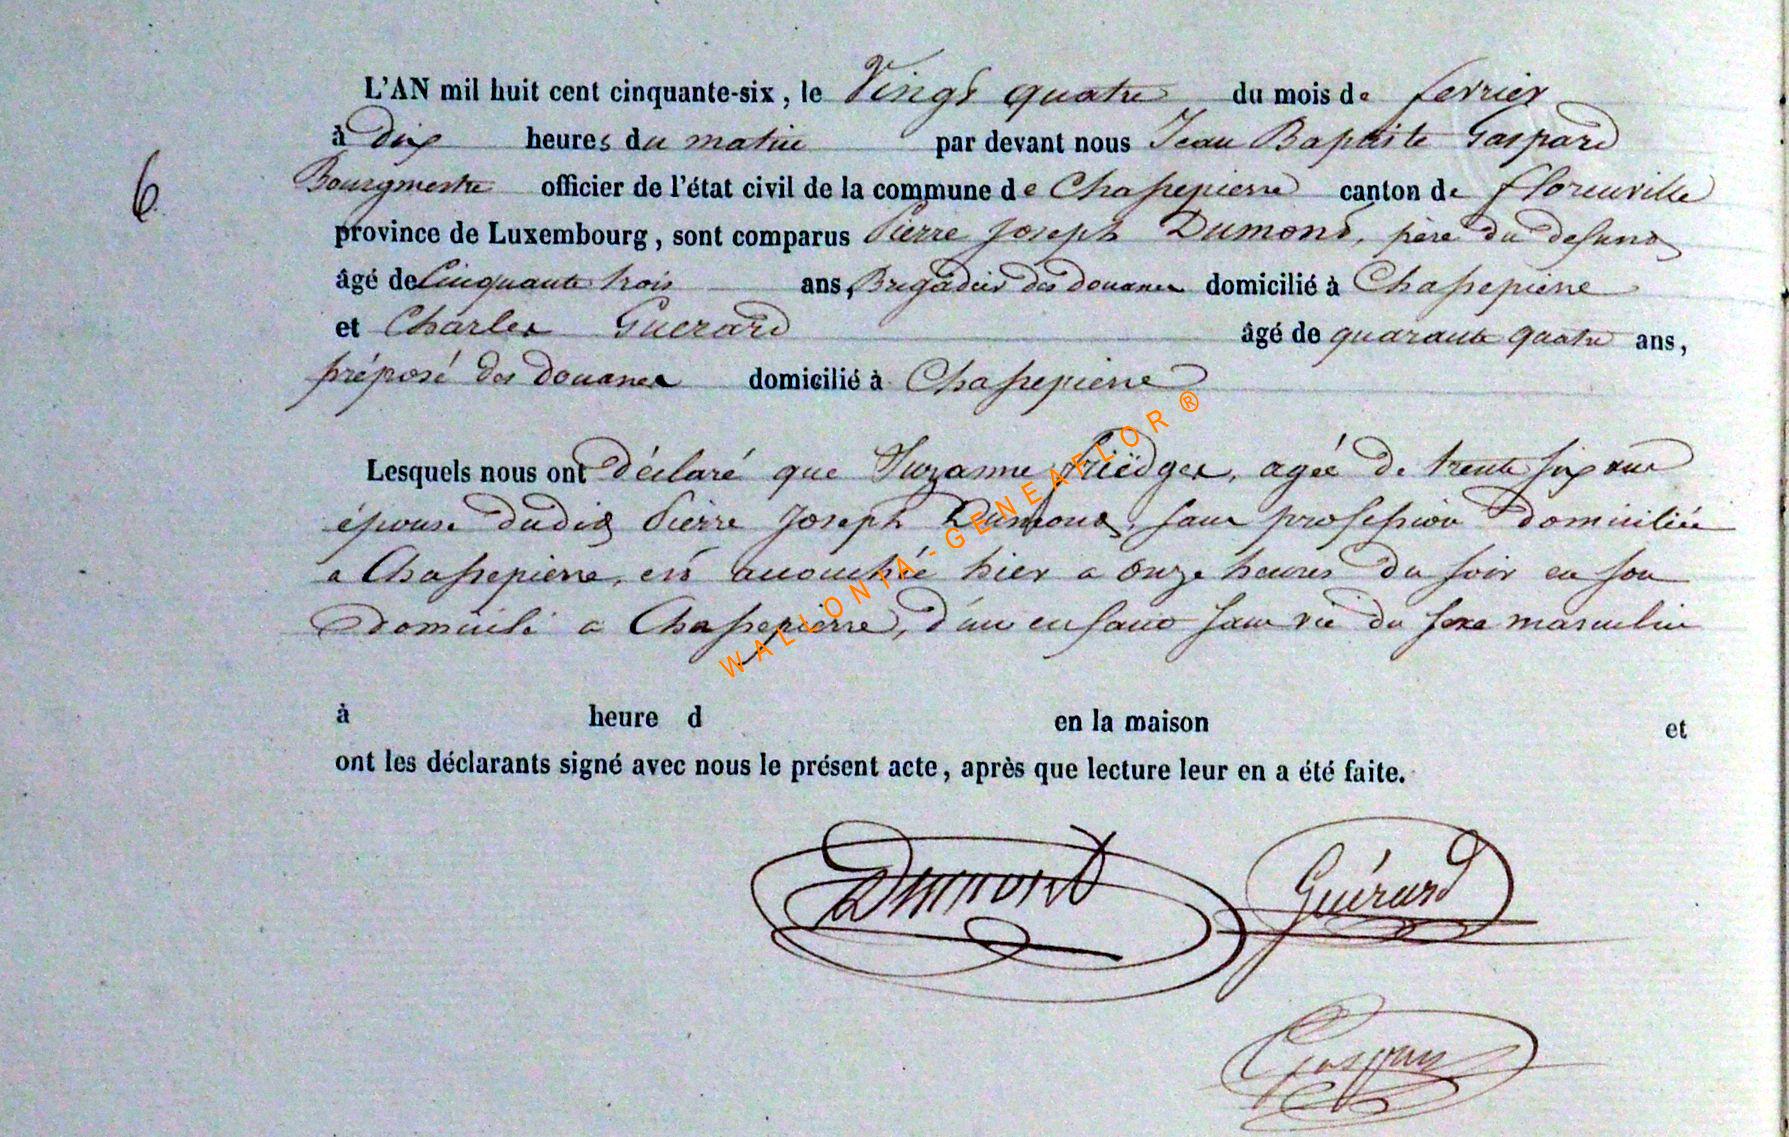 L'AN mil huit cent cinquante-six, le Vingt quatre du mois de fevrier
à dix heures du matin par devant nous Jean Baptiste Gaspard
Bourgmestre officier de l'état civil de la commune de Chassepierre canton de florenville
province de Luxembourg, sont comparus Pierre Joseph Dumont, père du defunt
6
âgé de Cinquante trois ans, Brigadier des douanes domicilié à Chassepierre
et Charles Guerard âgé de quarante quatre ans,
préposé des douanes domicilié à Chassepierre
Lesquels nous ont déclaré que Suzanne friëdges, agée de trente six ans
épouse dudit Pierre Joseph Dumont, sans profession domiciliée
a Chassepierre, est accouchée hier a onze heures du soir en son
domicile a Chassepierre, d'un enfant sans vie du sexe masculin
WALLONIA-GENEAFLOR ®
à heure d en la maison et
ont les déclarants signé avec nous le présent acte, après que lecture leur en a été faite.
Dumont Guérard
Gaspard